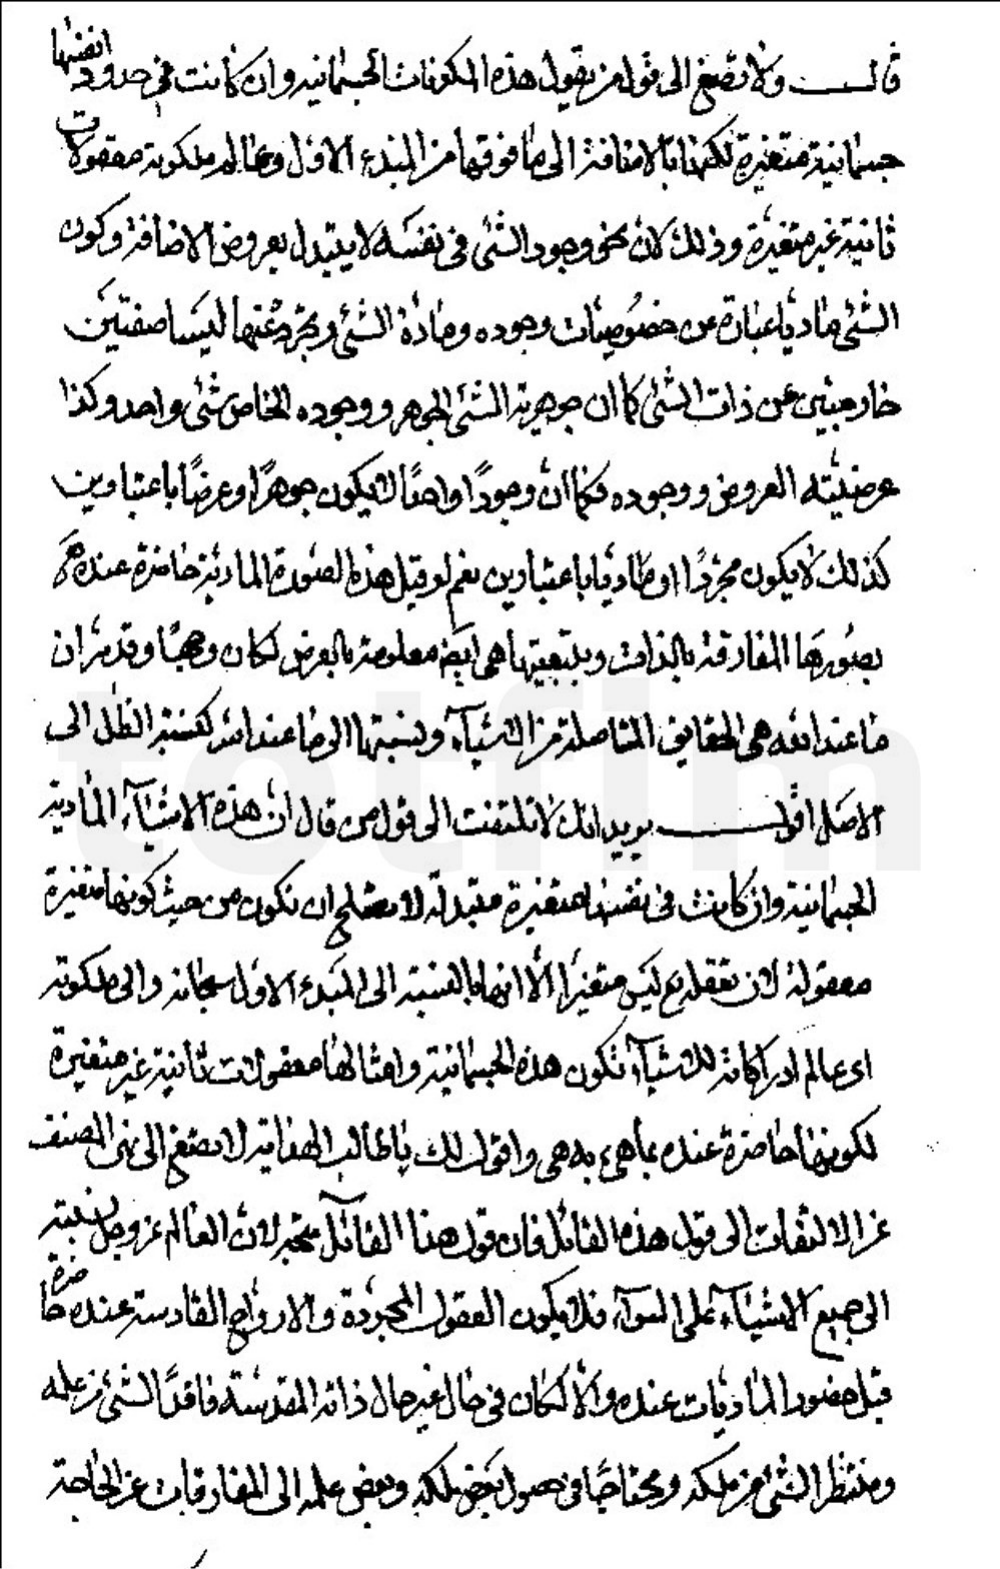 قال ولا تصغ الى قول من يقول هذه المكونات الجسمانية وان كانت في حدود انفسها
جسمانية متغيرة لكنها بالاضافة الى ما فوقها من المبدء الاول وعالم ملكوته معقولات
ثابتة غير متغيرة وذلك لان نحو وجود الشئ في نفسه لا يتبدل بعروض الاضافة وكون
الشئ ماديا عبارة عن خصوصيات وجوده ومادة الشئ وتجرده عنها ليسا صفتين
خارجيتين عن ذات الشئ كما ان جوهرية الشئ الجوهر ووجوده الخاص شئ واحد وكذا
عرضيته العروض ووجوده فكما ان وجودًا واحدًا لا يكون جوهرًا وعرضًا باعتبارين
كذلك لا يكون مجردًا او ماديًا باعتبارين نعم لو قيل هذه الصورة المادية حاضرة عنده
بصورها المفارقة بالذات وبتبعيتها هي ايضا معلومة بالعرض لكان وجهًا وقد مر ان
ما عند الله هي الحقايق المتاصلة من الاشياء ونسبتها الى ما عند الله كنسبة الظل الى
الاصل اقول يريد انك لا تلتفت الى قول من قال ان هذه الاشياء المادية
الجسمانية وان كانت في نفسها متغيرة متبدلة لا تصلح ان تكون من حيث كونها متغيرة
معقولة لان تعقله مع ليس متغيرا الا انها بالنسبة الى المبدء الاول سبحانه والى ملكوته
اى عالم ادراكاته للاشياء تكون هذه الجسمانية وامثالها معقولات ثابتة غير متغيرة
لكونها حاضرة عنده بما هي به هي واقول لك يا طالب الهداية لا تصغ الى نهى المصنف
عن الالتفات الى قول هذا القائل فان قول هذا القائل متجه لان العالم عز وجل نسبته
الى جميع الاشياء على السواء فلا يكون العقول المجردة والارواح القادسة عنده حاضرة
قبل حضور الماديات عنده والا لكان في حال غير حال ذاته المقدسة فاقدًا لشئ من علمه
ومنتظرا لشئ من ملكه ومحتاجًا في حصول بعض ملكه وبعض علمه الى المفارقات عن الحاجة